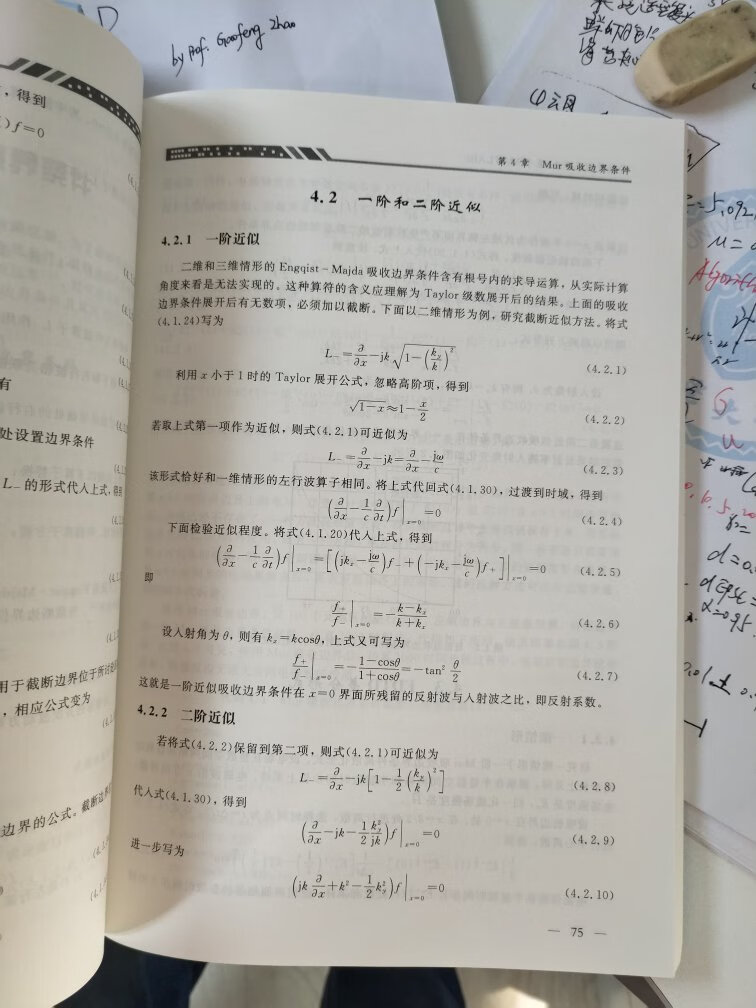 by Prof. Gaofeng Zhao
,得到
)f=0
有
处设置边界条件
L₋的形式代入上式,
用于截断边界位于所讨论
,相应公式变为
边界的公式。截断边界
第4章 Mur吸收边界条件
4.2 一阶和二阶近似
4.2.1 一阶近似
二维和三维情形的Engqist-Majda吸收边界条件含有根号内的求导运算,从实际计算
角度来看是无法实现的。这种算符的含义应理解为Taylor级数展开后的结果。上面的吸收
边界条件展开后有无数项,必须加以截断。下面以二维情形为例,研究截断近似方法。将式
(4.1.24)写为
L₋=∂/∂x-jk√(1-(k_y/k)²) (4.2.1)
利用x小于1时的Taylor展开公式,忽略高阶项,得到
√(1-x)≈1-x/2 (4.2.2)
若取上式第一项作为近似,则式(4.2.1)可近似为
L₋=∂/∂x-jk=∂/∂x-jω/c (4.2.3)
该形式恰好和一维情形的左行波算子相同。将上式代回式(4.1.30),过渡到时域,得到
(∂/∂x-1/c ∂/∂t)f|_{x=0}=0 (4.2.4)
下面检验近似程度。将式(4.1.20)代入上式,得到
(∂/∂x-1/c ∂/∂t)f|_{x=0}=[(jk_x-jω/c)f₋+(-jk_x-jω/c)f₊]|_{x=0}=0 (4.2.5)
即
f₊/f₋|_{x=0}=-(k-k_x)/(k+k_x) (4.2.6)
设入射角为θ,则有k_x=kcosθ,上式又可写为
f₊/f₋|_{x=0}=-(1-cosθ)/(1+cosθ)=-tan² θ/2 (4.2.7)
这就是一阶近似吸收边界条件在x=0界面所残留的反射波与入射波之比,即反射系数。
4.2.2 二阶近似
若将式(4.2.2)保留到第二项,则式(4.2.1)可近似为
L₋=∂/∂x-jk[1-1/2(k_y/k)²] (4.2.8)
代入式(4.1.30),得到
(∂/∂x-jk-1/2 k_y²/jk)f|_{x=0}=0 (4.2.9)
进一步写为
(jk ∂/∂x+k²-1/2 k_y²)f|_{x=0}=0 (4.2.10)
— 75 —